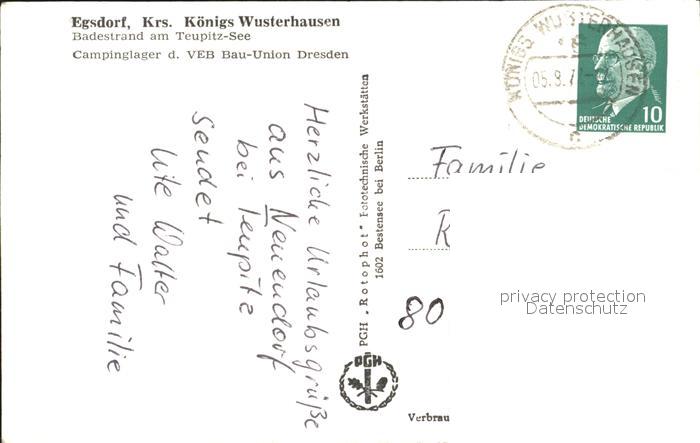 Egsdorf, Krs. Königs Wusterhausen
Badestrand am Teupitz-See
Campinglager d. VEB Bau-Union Dresden
KÖNIGS WUSTERHAUSEN
05.8.7
10
DEUTSCHE
DEMOKRATISCHE REPUBLIK
Herzliche Urlaubsgrüße
aus Neuendorf
bei Teupitz
sendet
Ute Walter
und Familie
PGH „Rotophot" Fototechnische Werkstätten
1602 Bestensee bei Berlin
PGH
Familie
R
80
privacy protection
Datenschutz
Verbrau